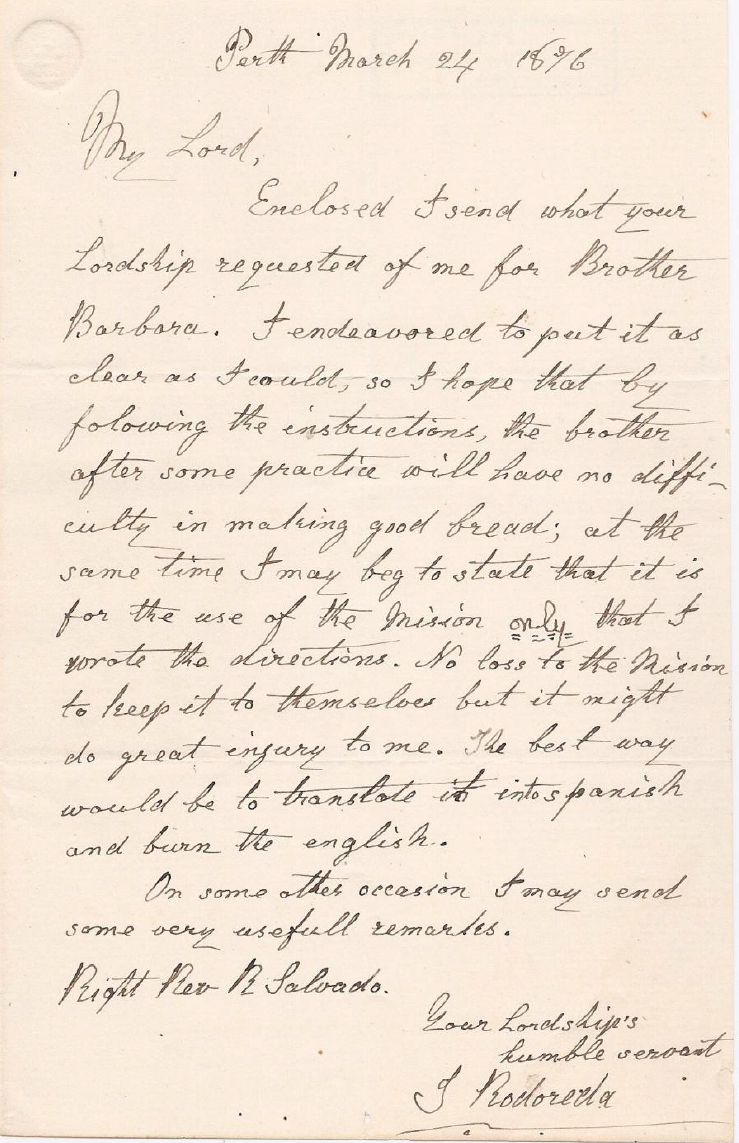 Perth March 24 1876
My Lord,
Enclosed I send what your
Lordship requested of me for Brother
Barbara. I endeavored to put it as
clear as I could, so I hope that by
folowing the instructions, the brother
after some practice will have no diffi-
culty in making good bread; at the
same time I may beg to state that it is
for the use of the Mision only that I
wrote the directions. No loss to the Mision
to keep it to themselves but it might
do great injury to me. The best way
would be to translate it into spanish
and burn the english.
On some other occasion I may send
some very usefull remarks.
Right Rev R Salvado.
Your Lordship's
humble servant
J Rodoreda